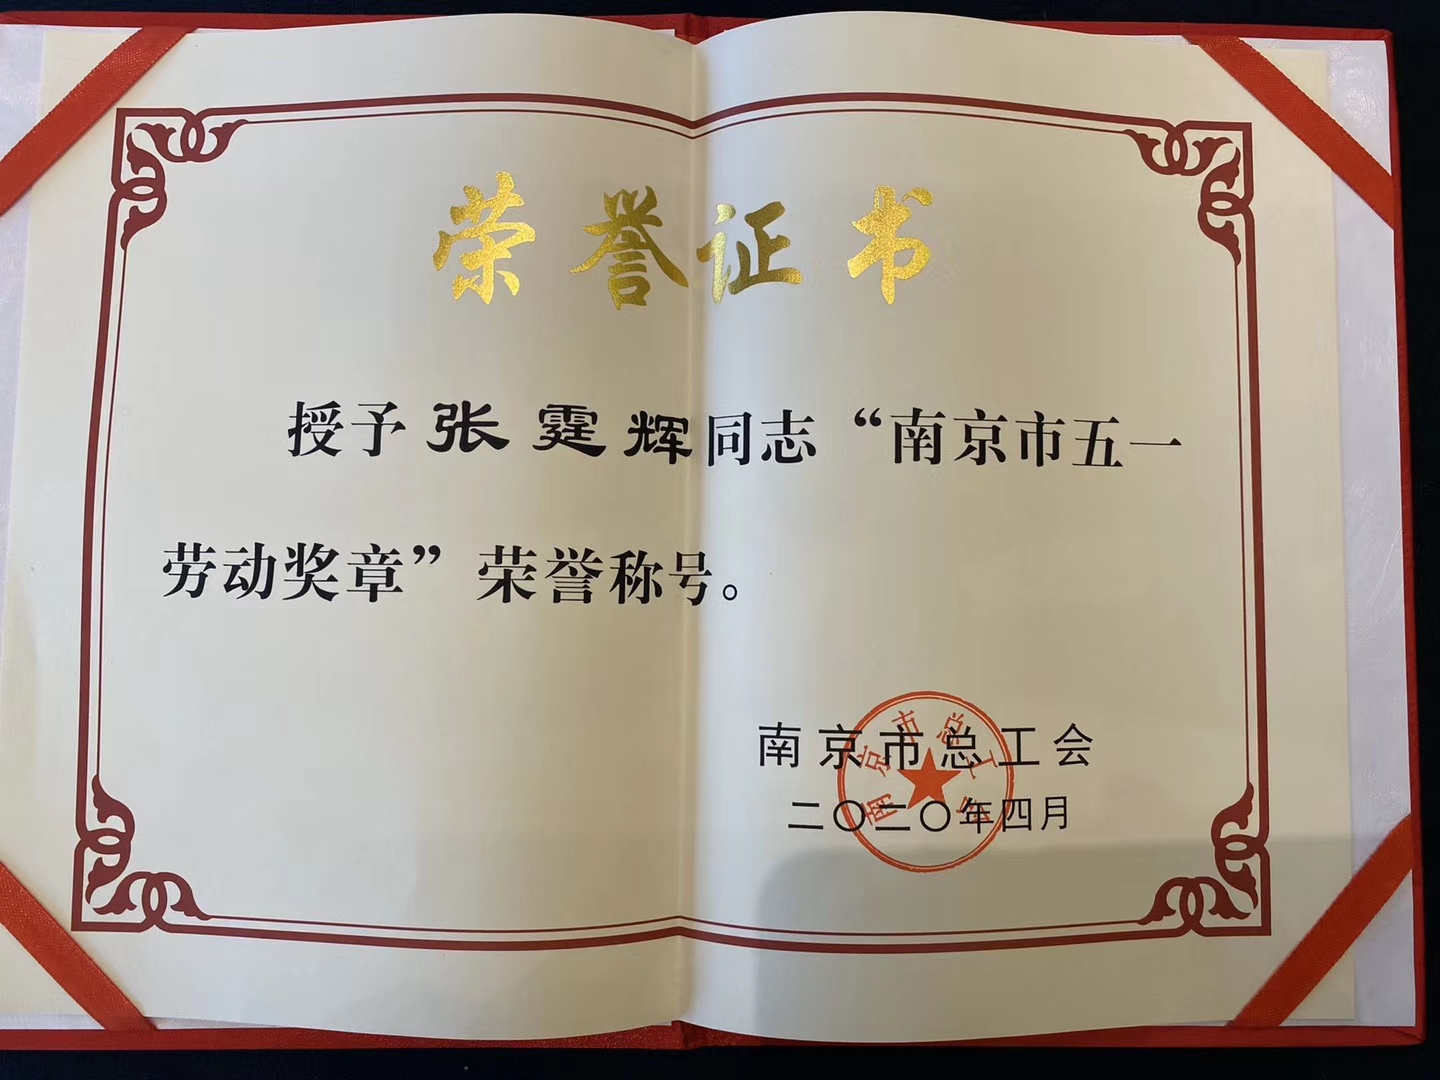 荣誉证书
授予张霆辉同志“南京市五一
劳动奖章”荣誉称号。
南京市总工会
二〇二〇年四月
南京市总工会